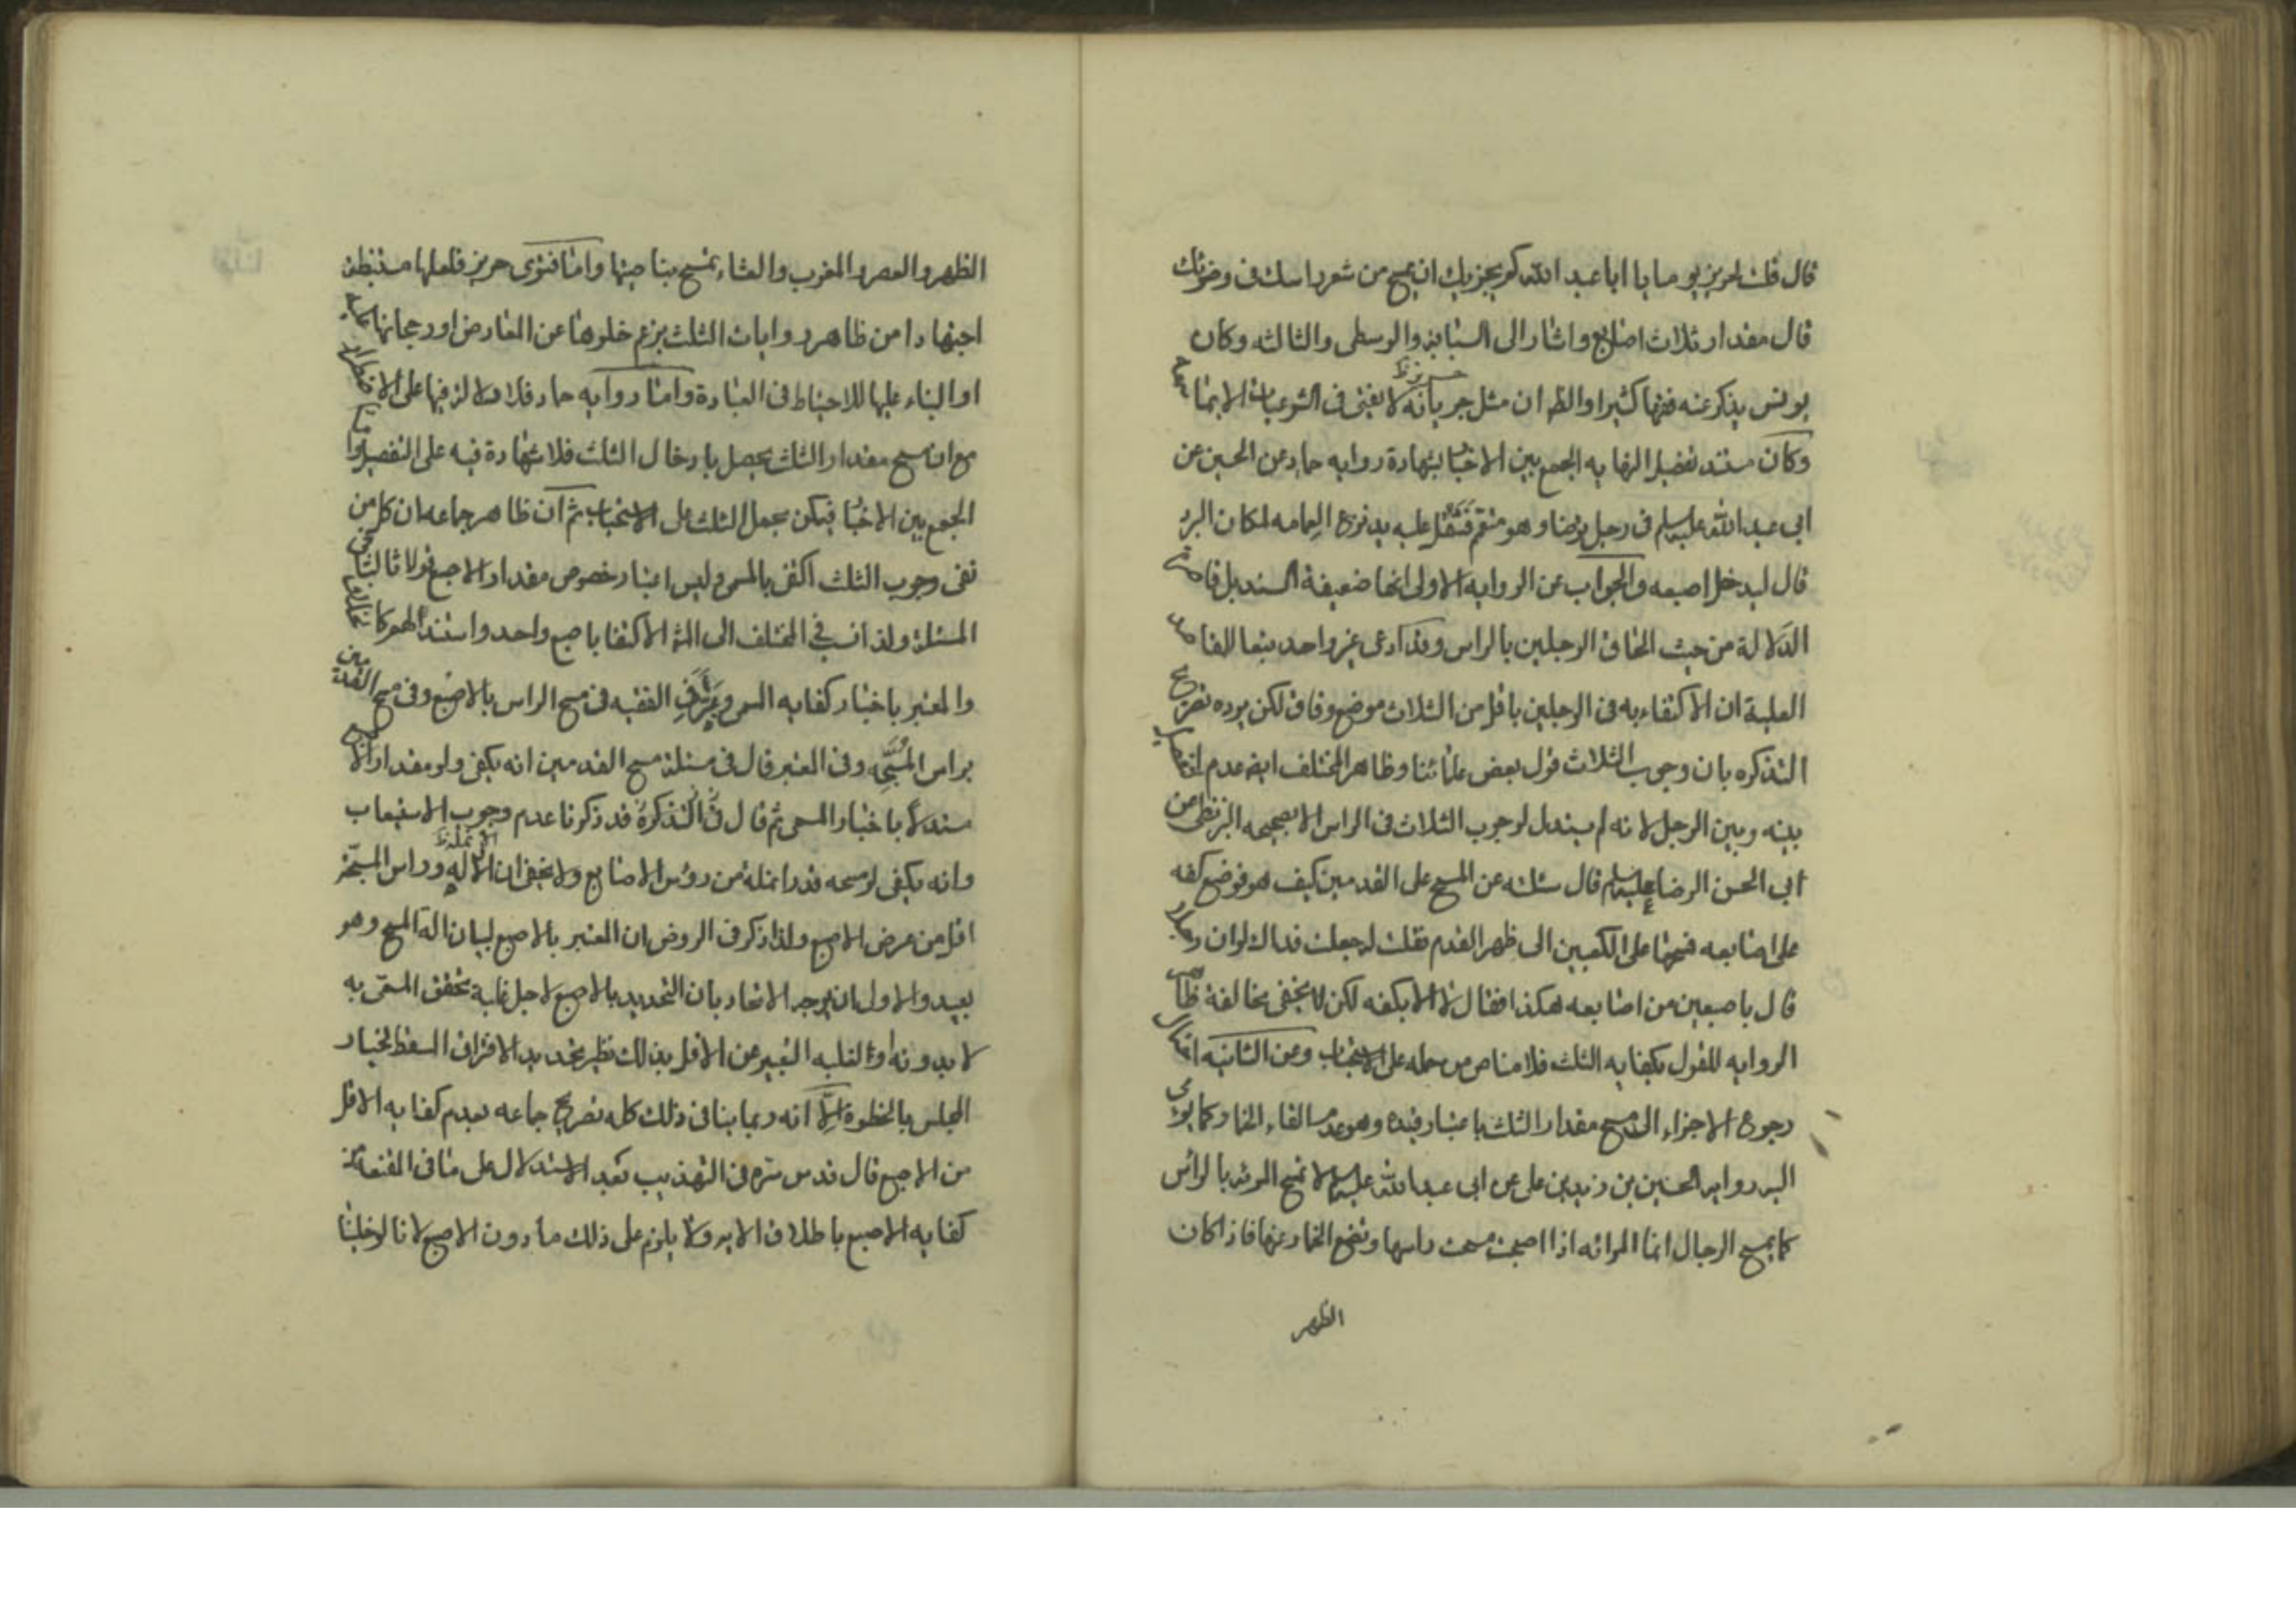 قال قلت لحريز يوما يا ابا عبد الله كم يجزيك ان تمسح من شعر راسك فى وضوئك
قال مقدار ثلاث اصابع واشار الى السبابة والوسطى والثالثه وكان
يونس يذكر عنه فقها كثيرا والظ ان مثل حريز انه لا يفتى فى الشرعيات الا بما
وكان مستند تفصيل النهايه الجمع بين الاخبار بشهادة روايه حماد عن الحسين عن
ابى عبد الله عليه السلم فى رجل توضا وهو متعمم فثقل عليه نزع العمامه لمكان البرد
قال ليدخل اصبعه والجواب عن الروايه الاولى انها ضعيفة السند بل قاصرة
الدلالة من حيث الحاق الرجلين بالراس وقد ادعى غير واحد
ان الاكتفاء به فى الرجلين باقل من الثلاث موضع وفاق لكن يرده تصريح
التذكره بان وجوب الثلاث قول بعض علمائنا وظاهر المختلف ايض عدم
بينه وبين الرجل لانه لم يستدل لوجوب الثلاث فى الراس الا بصحيحه البزنطى عن
ابى الحسن الرضا عليه السلم قال سئلته عن المسح على القدمين كيف هو فوضع كفه
على اصابعه فمسحها على الكعبين الى ظهر القدم فقلت له جعلت فداك لو ان رجلا
قال باصبعين من اصابعه هكذا فقال لا الا بكفه لكن لا يخفى مخالفة ظاهر
الروايه للقول بكفايه الثلث فلا مناص من حمله على الاستحباب وعن الثانيه
رجوع الاجزاء الى مسح مقدار الثلث باعتبار قيده وهو عدم القاء الخمار كما يومى
اليه روايه الحسين بن زيد بن على عن ابى عبد الله عليه السلم لا تمسح المرئه بالراس
كما يمسح الرجال انما المرائه اذا اصبحت مسحت راسها وتضع الخمار عنها فاذا كان
الظهر
الظهر والعصر والمغرب والعشاء تمسح بناصيتها واما فتوى حريز فلعلها مستنبطة
اجتهادا من ظاهر روايات الثلث بزعم خلوها عن المعارض او رجحانها عليه
او البناء عليها للاحتياط فى العبادة واما روايه حماد فلا دلالة فيها على الاضطرار
مع ان مسح مقدار الثلث يحصل بادخال الثلث فلا شهادة فيه على التفصيل واما
الجمع بين الاخبار فيمكن بحمل الثلث على الاستحباب ثم ان ظاهر جماعه ان كل من
نفى وجوب الثلث اكتفى بالمسمى وليس اعتبار خصوص مقدار الاصبع قولا ثالثا فى
المسئلة ولذا نسب فى المختلف الى المش الاكتفا باصبع واحد واستند لهم
والمعتبر باخبار كفايه المسمى الفقيه فى مسح الراس بالاصبع وفى مسح القدمين
براس المسبحه وفى المعتبر قال فى مسئلة مسح القدمين انه يكفى ولو مقدار
مستدلا باخبار المسمى ثم قال فى التذكرة قد ذكرنا عدم وجوب الاستيعاب
وانه يكفى لو مسحه قدر انملة من رؤس الاصابع ولا يخفى ان الانمله وراس المسبحه
اقل من عرض الاصبع ولذا ذكر فى الروض ان التعبير بالاصبع لبيان الة المسح وهو
بعيد والاولى ان يوجه الاتحاد بان التحديد بالاصبع لاجل غلبة تحقق المسمى به
لا بدونه او لغلبه التعبير عن الاقل بذالك نظير تحديد الافتراق المسقط لخيار
المجلس بالخطوة الا انه ربما ينافى ذلك كله تصريح جماعه بعدم كفايه الاقل
من الاصبع قال قدس سره فى التهذيب بعد الاستدلال على ما فى المقنعة من
كفايه الاصبع باطلاق الايه ولا يلزم على ذلك ما دون الاصبع لانا لو خلينا